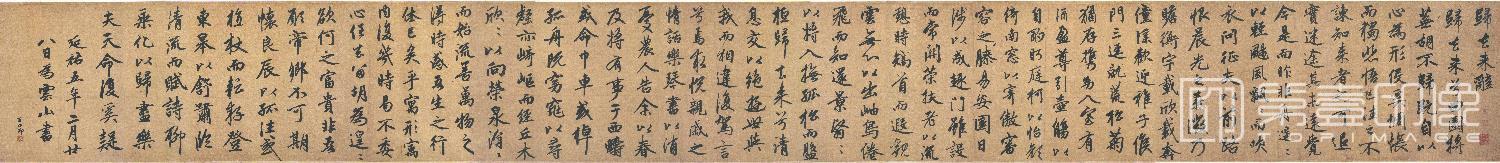 歸去來辭
歸去來兮田園將
蕪胡不歸既自以
心為形役奚惆悵
而獨悲悟已往之不
諫知来者之可追
實迷途其未遠覺
今是而昨非舟遥〻
以輕颺風飄〻而吹
衣問征夫以前路
恨晨光之熹微乃
瞻衡宇載欣載奔
僮僕歡迎稚子候
門三逕就荒松菊
猶存攜幼入室有
酒盈尊引壺觴以
自酌眄庭柯以怡顏
倚南窗以寄傲審
容之膝易安園日
涉以成趣門雖設
而常關策扶老以流
憩時矯首而遐觀
雲無心以出岫鳥倦
飛而知還景翳〻
以將入撫孤松而盤
桓歸去来兮請
息交以絕遊世與
我而相違復駕言
兮焉求悦親戚之
情話樂琴書以消
憂農人告余以春
及將有事于西疇
或命巾車或棹
孤舟既窈窕以尋
壑亦崎嶇而經丘木
欣〻以向榮泉涓〻
而始流善萬物之
得時感吾生之行
休已矣乎寓形宇
内復幾時曷不委
心任去留胡為遑〻
欲何之富貴非吾
願帝鄉不可期
懷良辰以孤往或
植杖而耘耔登
東皋以舒嘯臨
清流而賦詩聊
乘化以歸盡樂
夫天命復奚疑
延祐五年二月廿
八日為雲山書
子昂